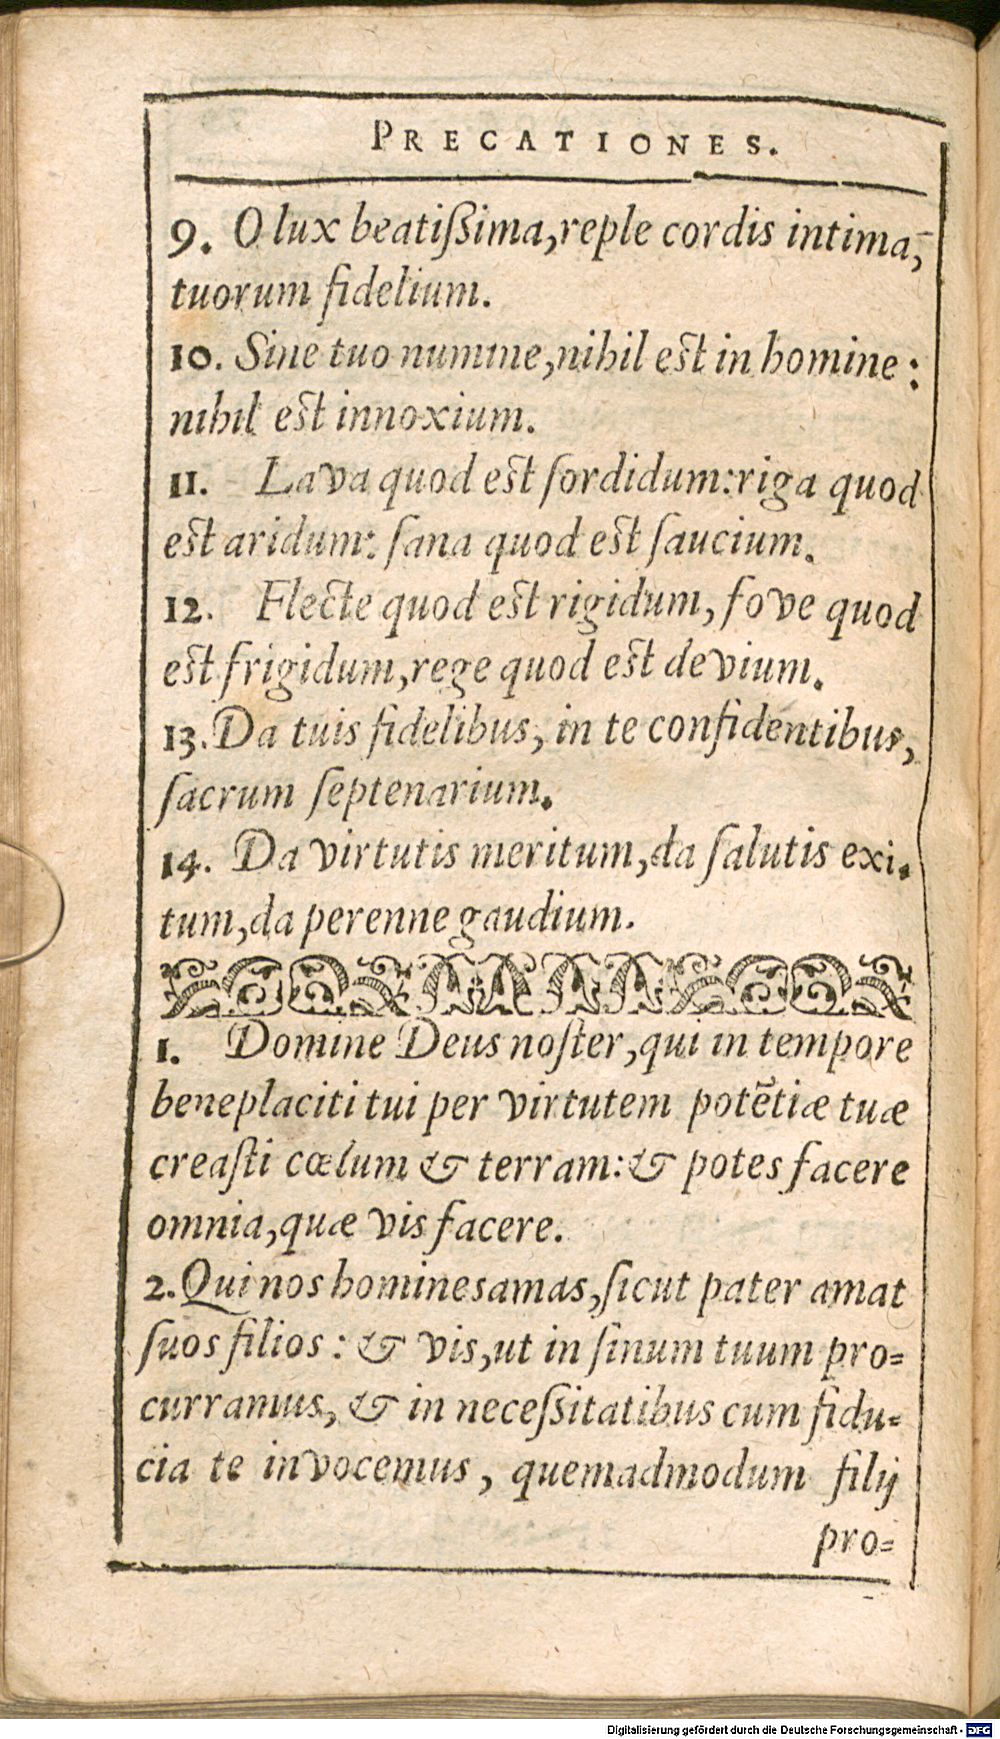 PRECATIONES.
9. O lux beatißima, reple cordis intima,
tuorum fidelium.
10. Sine tuo numine, nihil est in homine:
nihil est innoxium.
11. Lava quod est ſordidum: riga quod
est aridum: ſana quod est ſaucium.
12. Flecte quod est rigidum, fove quod
est frigidum, rege quod est devium.
13. Da tuis fidelibus, in te confidentibus,
ſacrum ſeptenarium.
14. Da virtutis meritum, da ſalutis exi.
tum, da perenne gaudium.
1. Domine Deus noſter, qui in tempore
beneplaciti tui per virtutem potētiæ tuæ
creaſti cœlum & terram: & potes facere
omnia, quæ vis facere.
2. Qui nos homines amas, ſicut pater amat
ſuos filios: & vis, ut in ſinum tuum pro=
curramus, & in neceßitatibus cum fidu=
cia te invocemus, quemadmodum filij
pro=
Digitalisierung gefördert durch die Deutsche Forschungsgemeinschaft - DFG